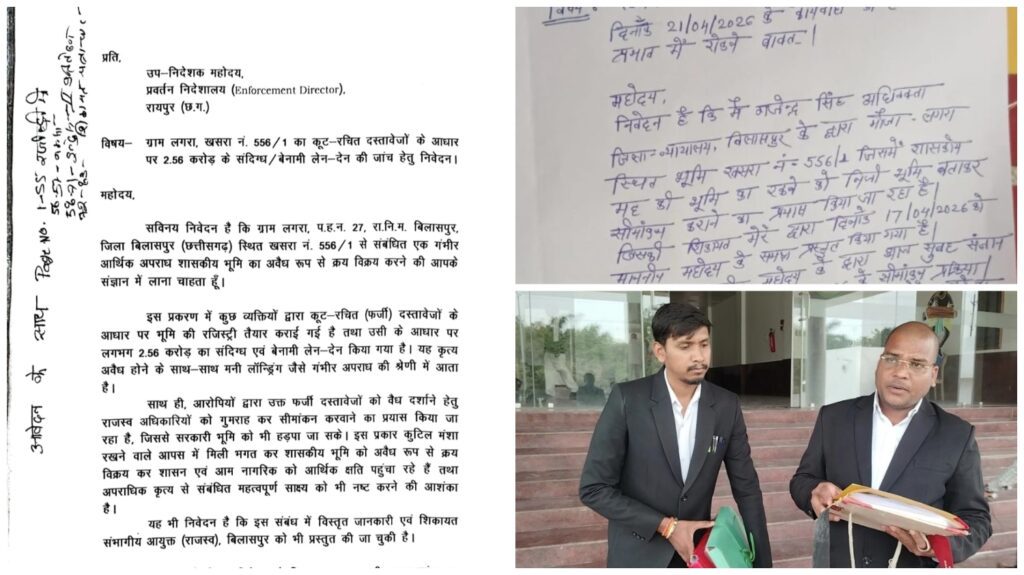 प्रति,
उप–निदेशक महोदय,
प्रवर्तन निदेशालय (Enforcement Director),
रायपुर (छ.ग.)
विषय– ग्राम लगरा, खसरा नं. 556/1 का कूट–रचित दस्तावेजों के आधार
पर 2.56 करोड़ के संदिग्ध/बेनामी लेन–देन की जांच हेतु निवेदन।
महोदय,
सविनय निवेदन है कि ग्राम लगरा, प.ह.न. 27, रा.नि.म. बिलासपुर,
जिला बिलासपुर (छत्तीसगढ़) स्थित खसरा नं. 556/1 से संबंधित एक गंभीर
आर्थिक अपराध शासकीय भूमि का अवैध रूप से क्रय विक्रय करने की आपके
संज्ञान में लाना चाहता हूँ।
इस प्रकरण में कुछ व्यक्तियों द्वारा कूट–रचित (फर्जी) दस्तावेजों के
आधार पर भूमि की रजिस्ट्री तैयार कराई गई है तथा उसी के आधार पर
लगभग 2.56 करोड़ का संदिग्ध एवं बेनामी लेन–देन किया गया है। यह कृत्य
अवैध होने के साथ–साथ मनी लॉन्ड्रिंग जैसे गंभीर अपराध की श्रेणी में आता
है।
साथ ही, आरोपियों द्वारा उक्त फर्जी दस्तावेजों को वैध दर्शाने हेतु
राजस्व अधिकारियों को गुमराह कर सीमांकन करवाने का प्रयास किया जा
रहा है, जिससे सरकारी भूमि को भी हड़पा जा सके। इस प्रकार कुटिल मंशा
रखने वाले आपस में मिली भगत कर शासकीय भूमि को अवैध रूप से क्रय
विक्रय कर शासन एवं आम नागरिक को आर्थिक क्षति पहुंचा रहे हैं तथा
अपराधिक कृत्य से संबंधित महत्वपूर्ण साक्ष्य को भी नष्ट करने की आशंका
है।
यह भी निवेदन है कि इस संबंध में विस्तृत जानकारी एवं शिकायत
संभागीय आयुक्त (राजस्व), बिलासपुर को भी प्रस्तुत की जा चुकी है।
आवेदन के साथ Page No. 1-55
विषय :
दिनाँक 21/04/2026 के कार्यवाही
में रोकने बावत्।
महोदय,
निवेदन है कि मैं गजेन्द्र सिंह अधिवक्ता
जिला–न्यायालय, बिलासपुर के द्वारा मौजा–लगरा
स्थित भूमि खसरा नं– 556/1 जिसमें शासकीय
मद की भूमि का रकबे को निजी भूमि बताकर
सीमांकन कराने का प्रयास किया जा रहा है।
जिसकी शिकायत मेरे द्वारा दिनाँक 17/04/2026 को
माननीय महोदय के समक्ष प्रस्तुत किया गया है।
महोदय के द्वारा